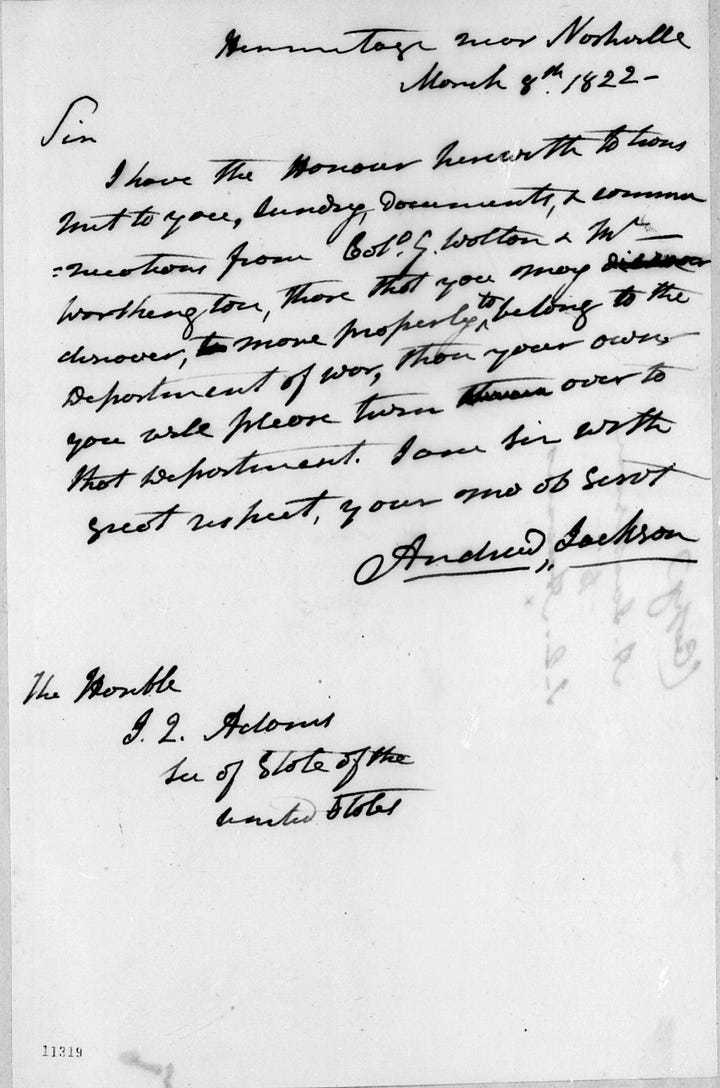 Hermitage near Nashville
March 8th 1822–
Sir
I have the Honour herewith to trans
mit to you, Sundry, Documents, & commu
=nications from Colo. G. Walton & Mr —
Worthington, those that you may
discover, more properly to belong to the
Department of war, than your own
you will please turn over to
that Department. I am Sir with
great respect, your mo ob Servt
Andrew Jackson
The Honble
J. Q. Adams
Sec of State of the
united States
11319